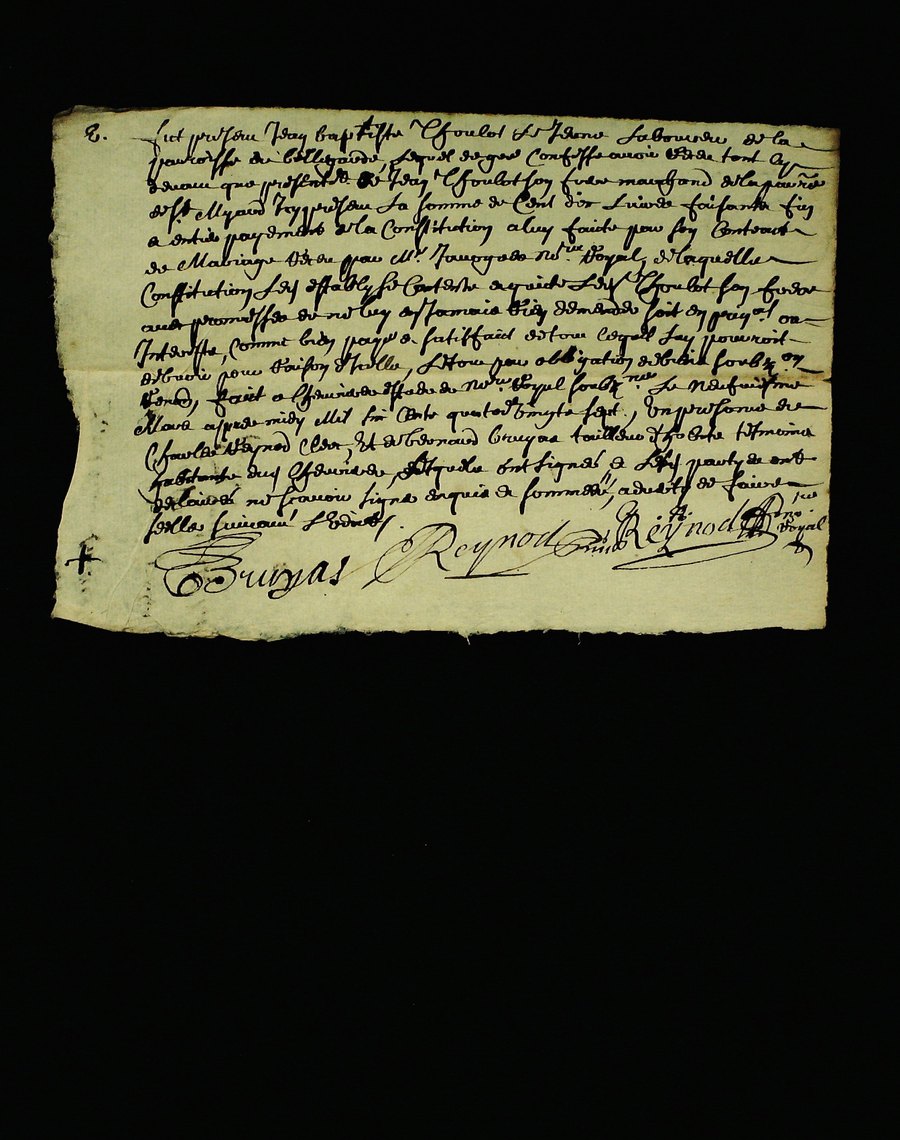 2.
fut present Jean baptiste Thoulot le Jeune Laboureur de la
parroisse de bellegarde, Lequel de gré Confesse avoir Receu tant cy
devant que presentem̄t de Jean Thoulot son frere marchand de la parr̄sse
de St Myard Icy present La somme de Cent dix Livres faisante fin
& entier payement de la Constitution a luy faicte par son Contract
de Mariage Receu par Me Javogues nore Royal, de laquelle
Constitution Led establys se Contente & quitte Led Thoulot son frere
avec promesses de ne luy en Jamais Rien demander soit en prinal ou
Interests, Comme bien payé & satisfait de tout ce quil luy pourroit
debvoir pour Raison d'Icelle, Le tout par obligation de biens soubz. on
Renon, faict a Chevrieres estude du nore Royal soubz.ne Le neufviesme
Mars apres midy Mil six Cents quatre vingts sept, En presence de
Charles Reynod Clerc, Et de bernard bruyas tailleur d'habits tesmoins
habitants dud Chevrieres, Lesquels ont signés & Led partyes ont
declairés ne scavoir signer enquis & sommés, advertys de faire
seeller suivant L'edict.
Bruyas Reynod Reynod nore Royal